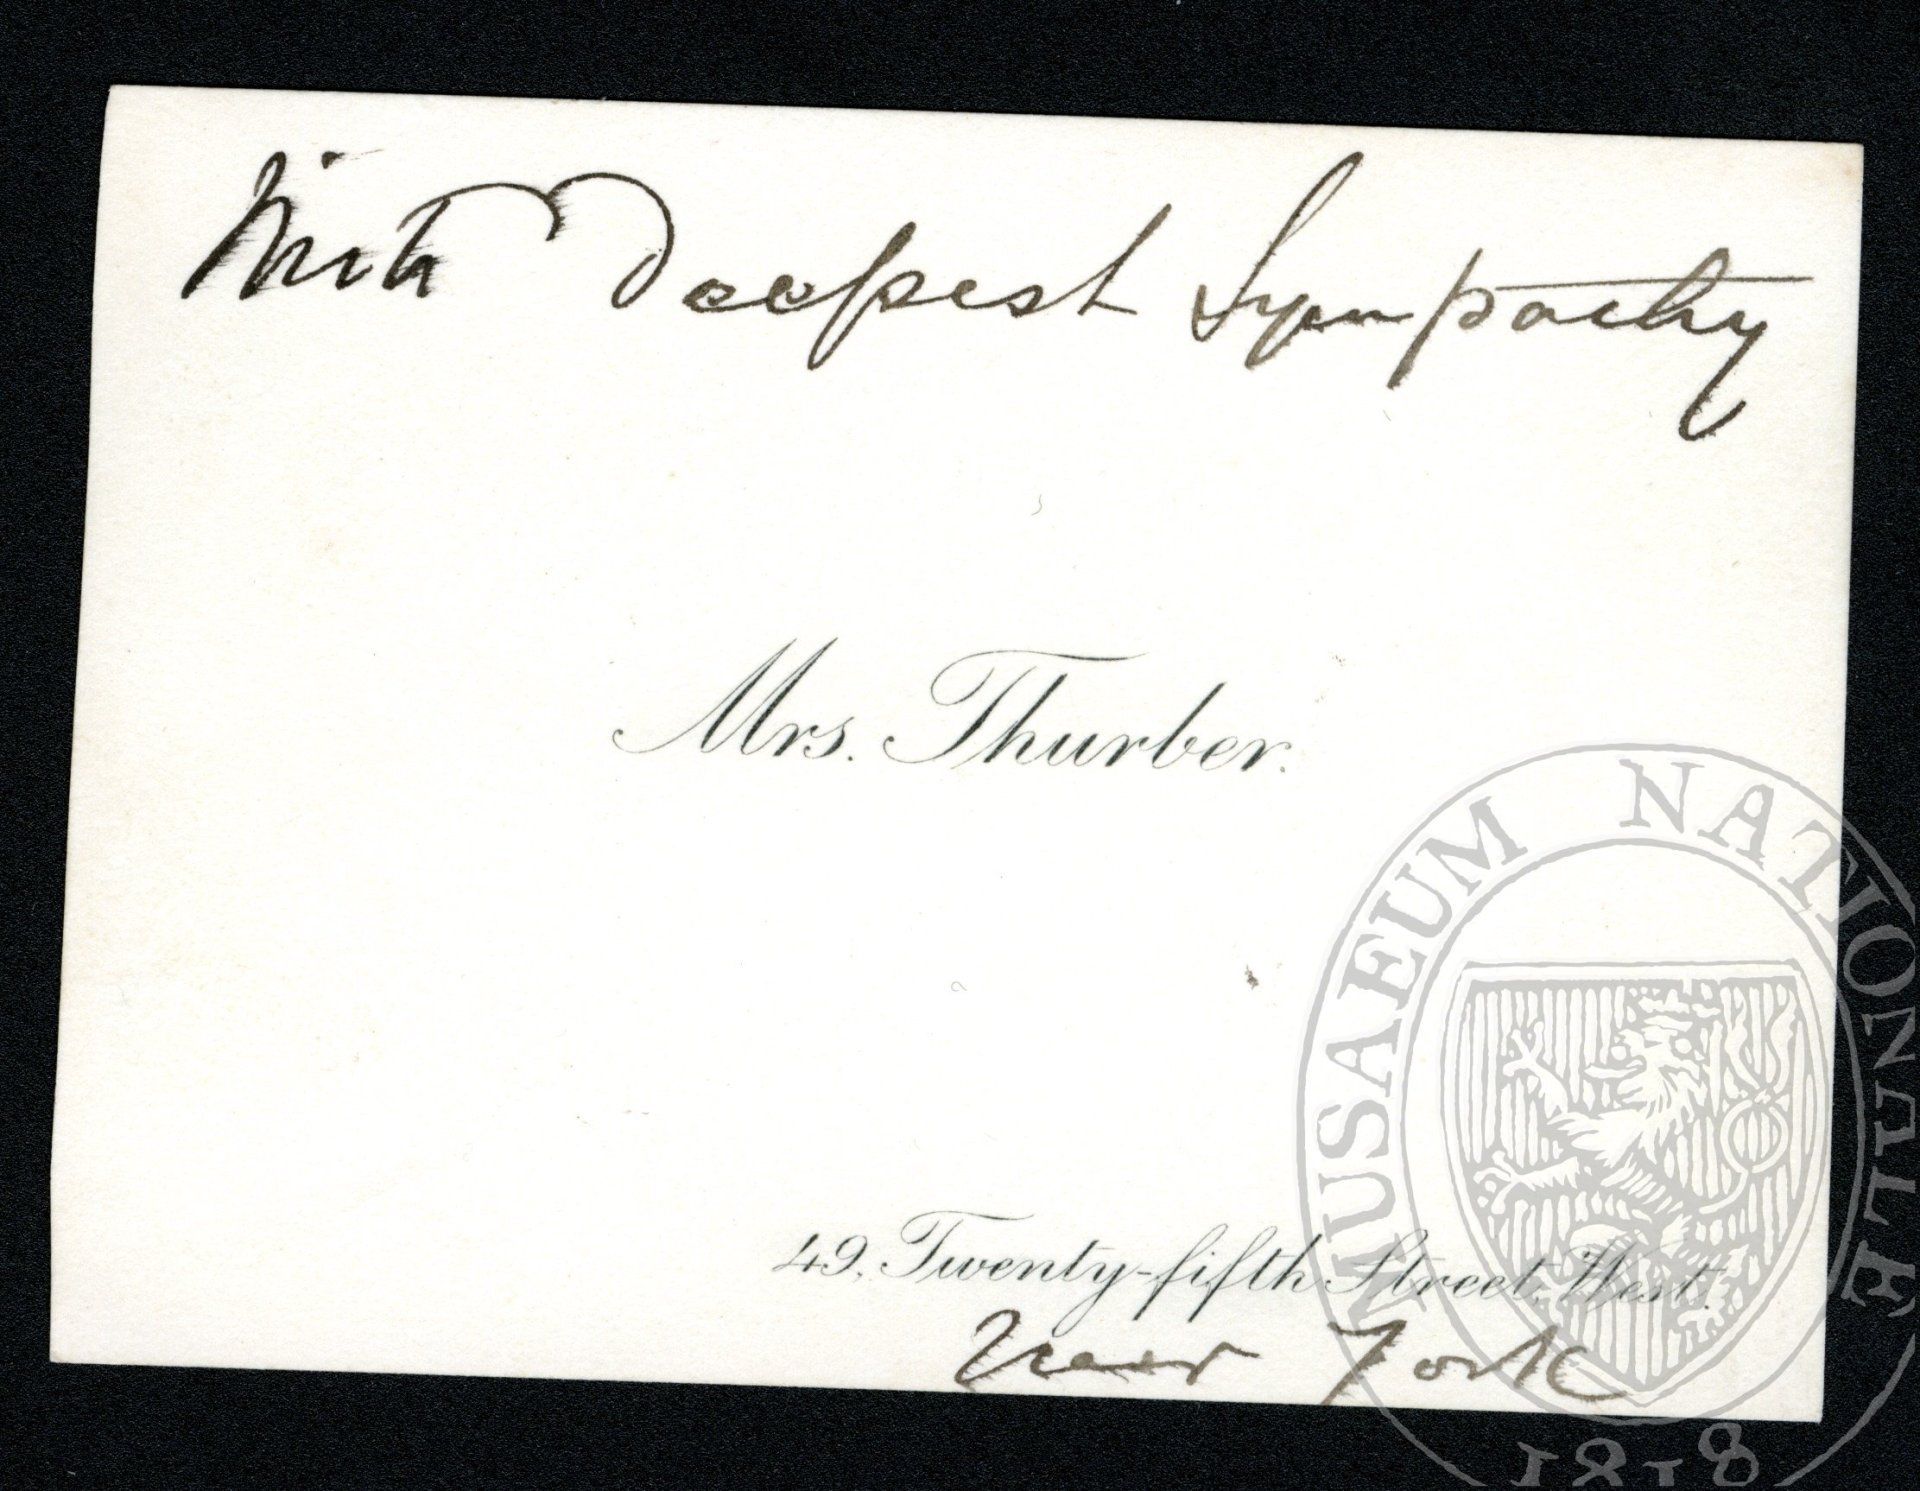 With Deepest Sympathy
Mrs. Thurber.
49, Twenty-fifth Street, West.
New York
MUSAEUM NATIONALE
1818